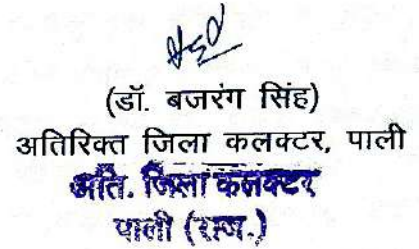 (डॉ. बजरंग सिंह)
अतिरिक्त जिला कलक्टर, पाली
अति. जिला कलक्टर
पाली (राज.)